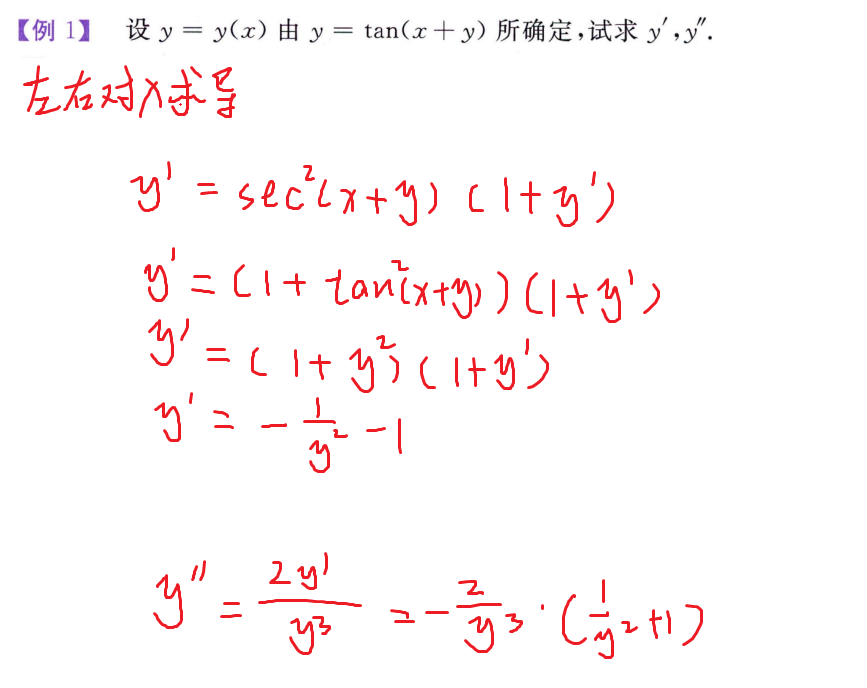 【例 1】 设 y = y(x) 由 y = tan(x + y) 所确定,试求 y′,y″.
左右对x求导
y' = sec²(x+y) (1+y')
y' = (1+ tan²(x+y)) (1+y')
y' = (1+y²) (1+y')
y' = -1/y² -1
y'' = 2y'/y³ = -2/y³ · (1/y² +1)